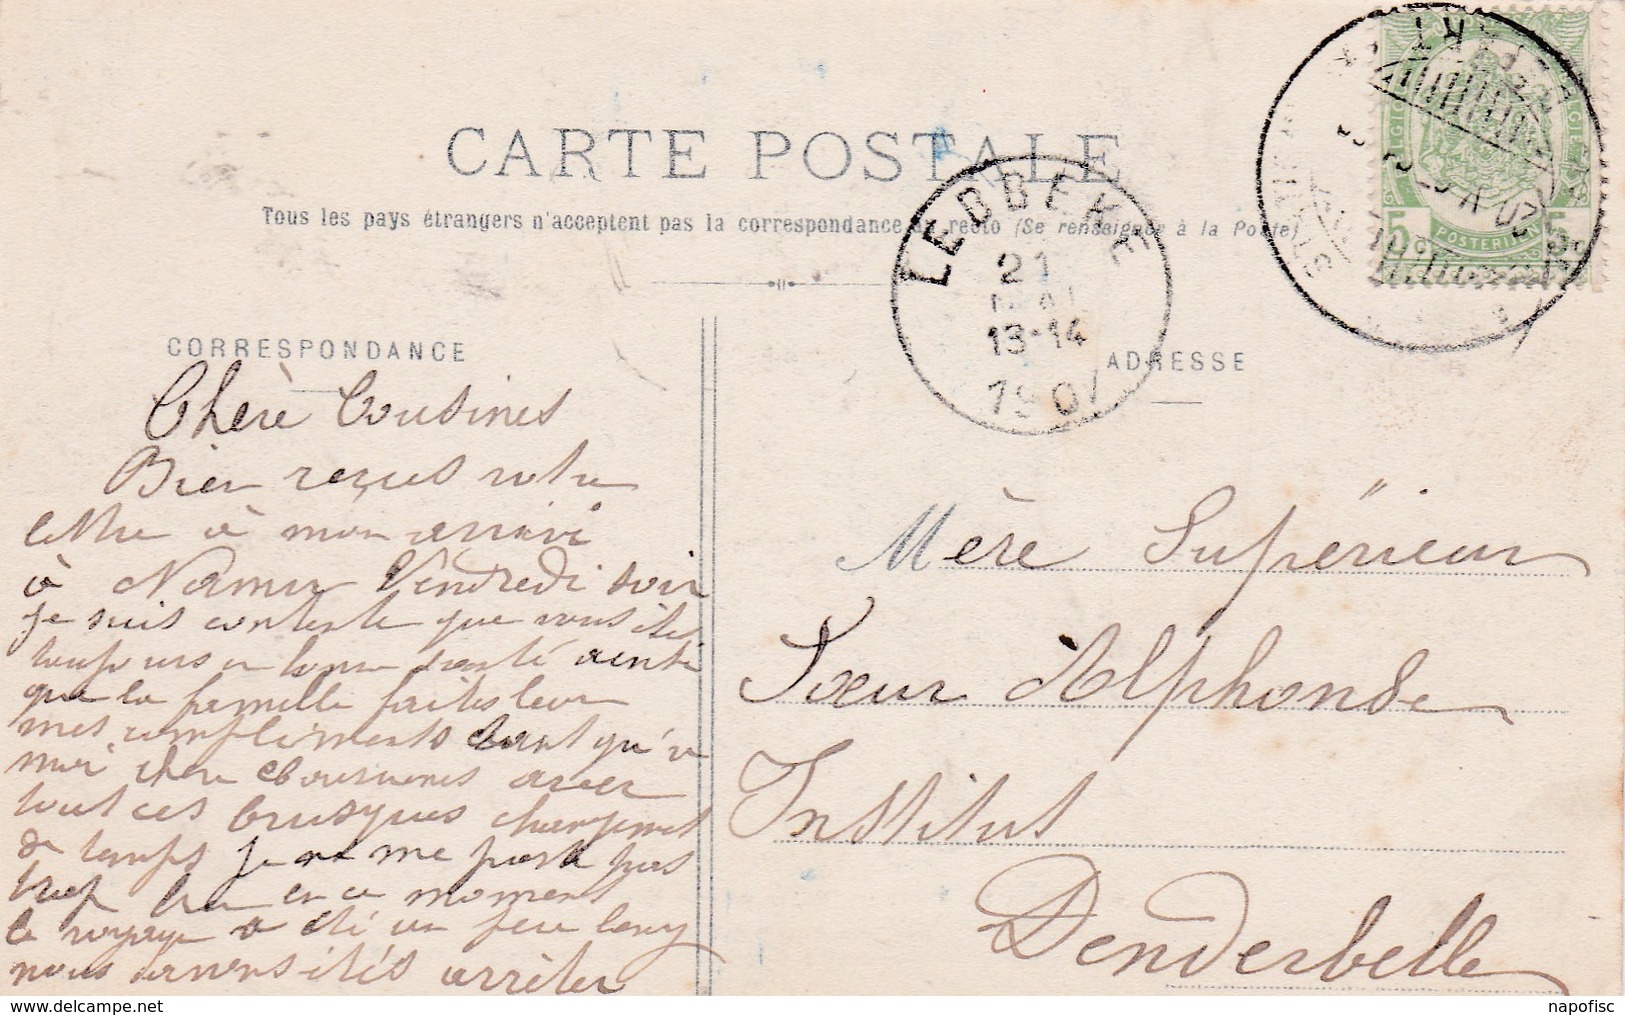 CARTE POSTALE
Tous les pays étrangers n'acceptent pas la correspondance au recto (Se renseigner à la Poste)
LEDDEK
21
13-14
1907
5
5
POSTERIJEN
CORRESPONDANCE
ADRESSE
Chère Cousines
Bien reçus votre
lettre à mon arrivé
à Namur Vendredi soir
je suis contente que vous êtes
toujours en bonne santé ainsi
que la famille faites leur
mes compliments quant qu'à
moi chere Cousines avec
tout ces brusques changement
de temps je ne me porte pas
trop bien en ce moment
le voyage a été un peu long
nous avons étés arrêter
Mère Supérieur
Sœur Alphonse
Institut
Denderbelle
delcampe.net
napofisc